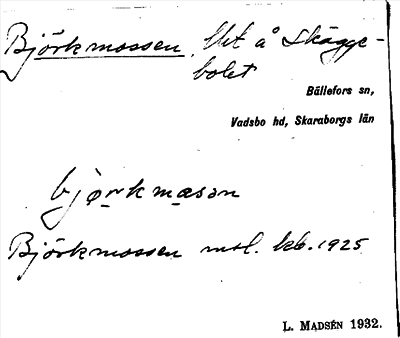 Björkmossen, Ut å Skägge-
bolet
Bällefors sn,
Vadsbo hd, Skaraborgs län
bjørkmæsən
Björkmossen msl. kb. 1925
L. MADSÉN 1932.